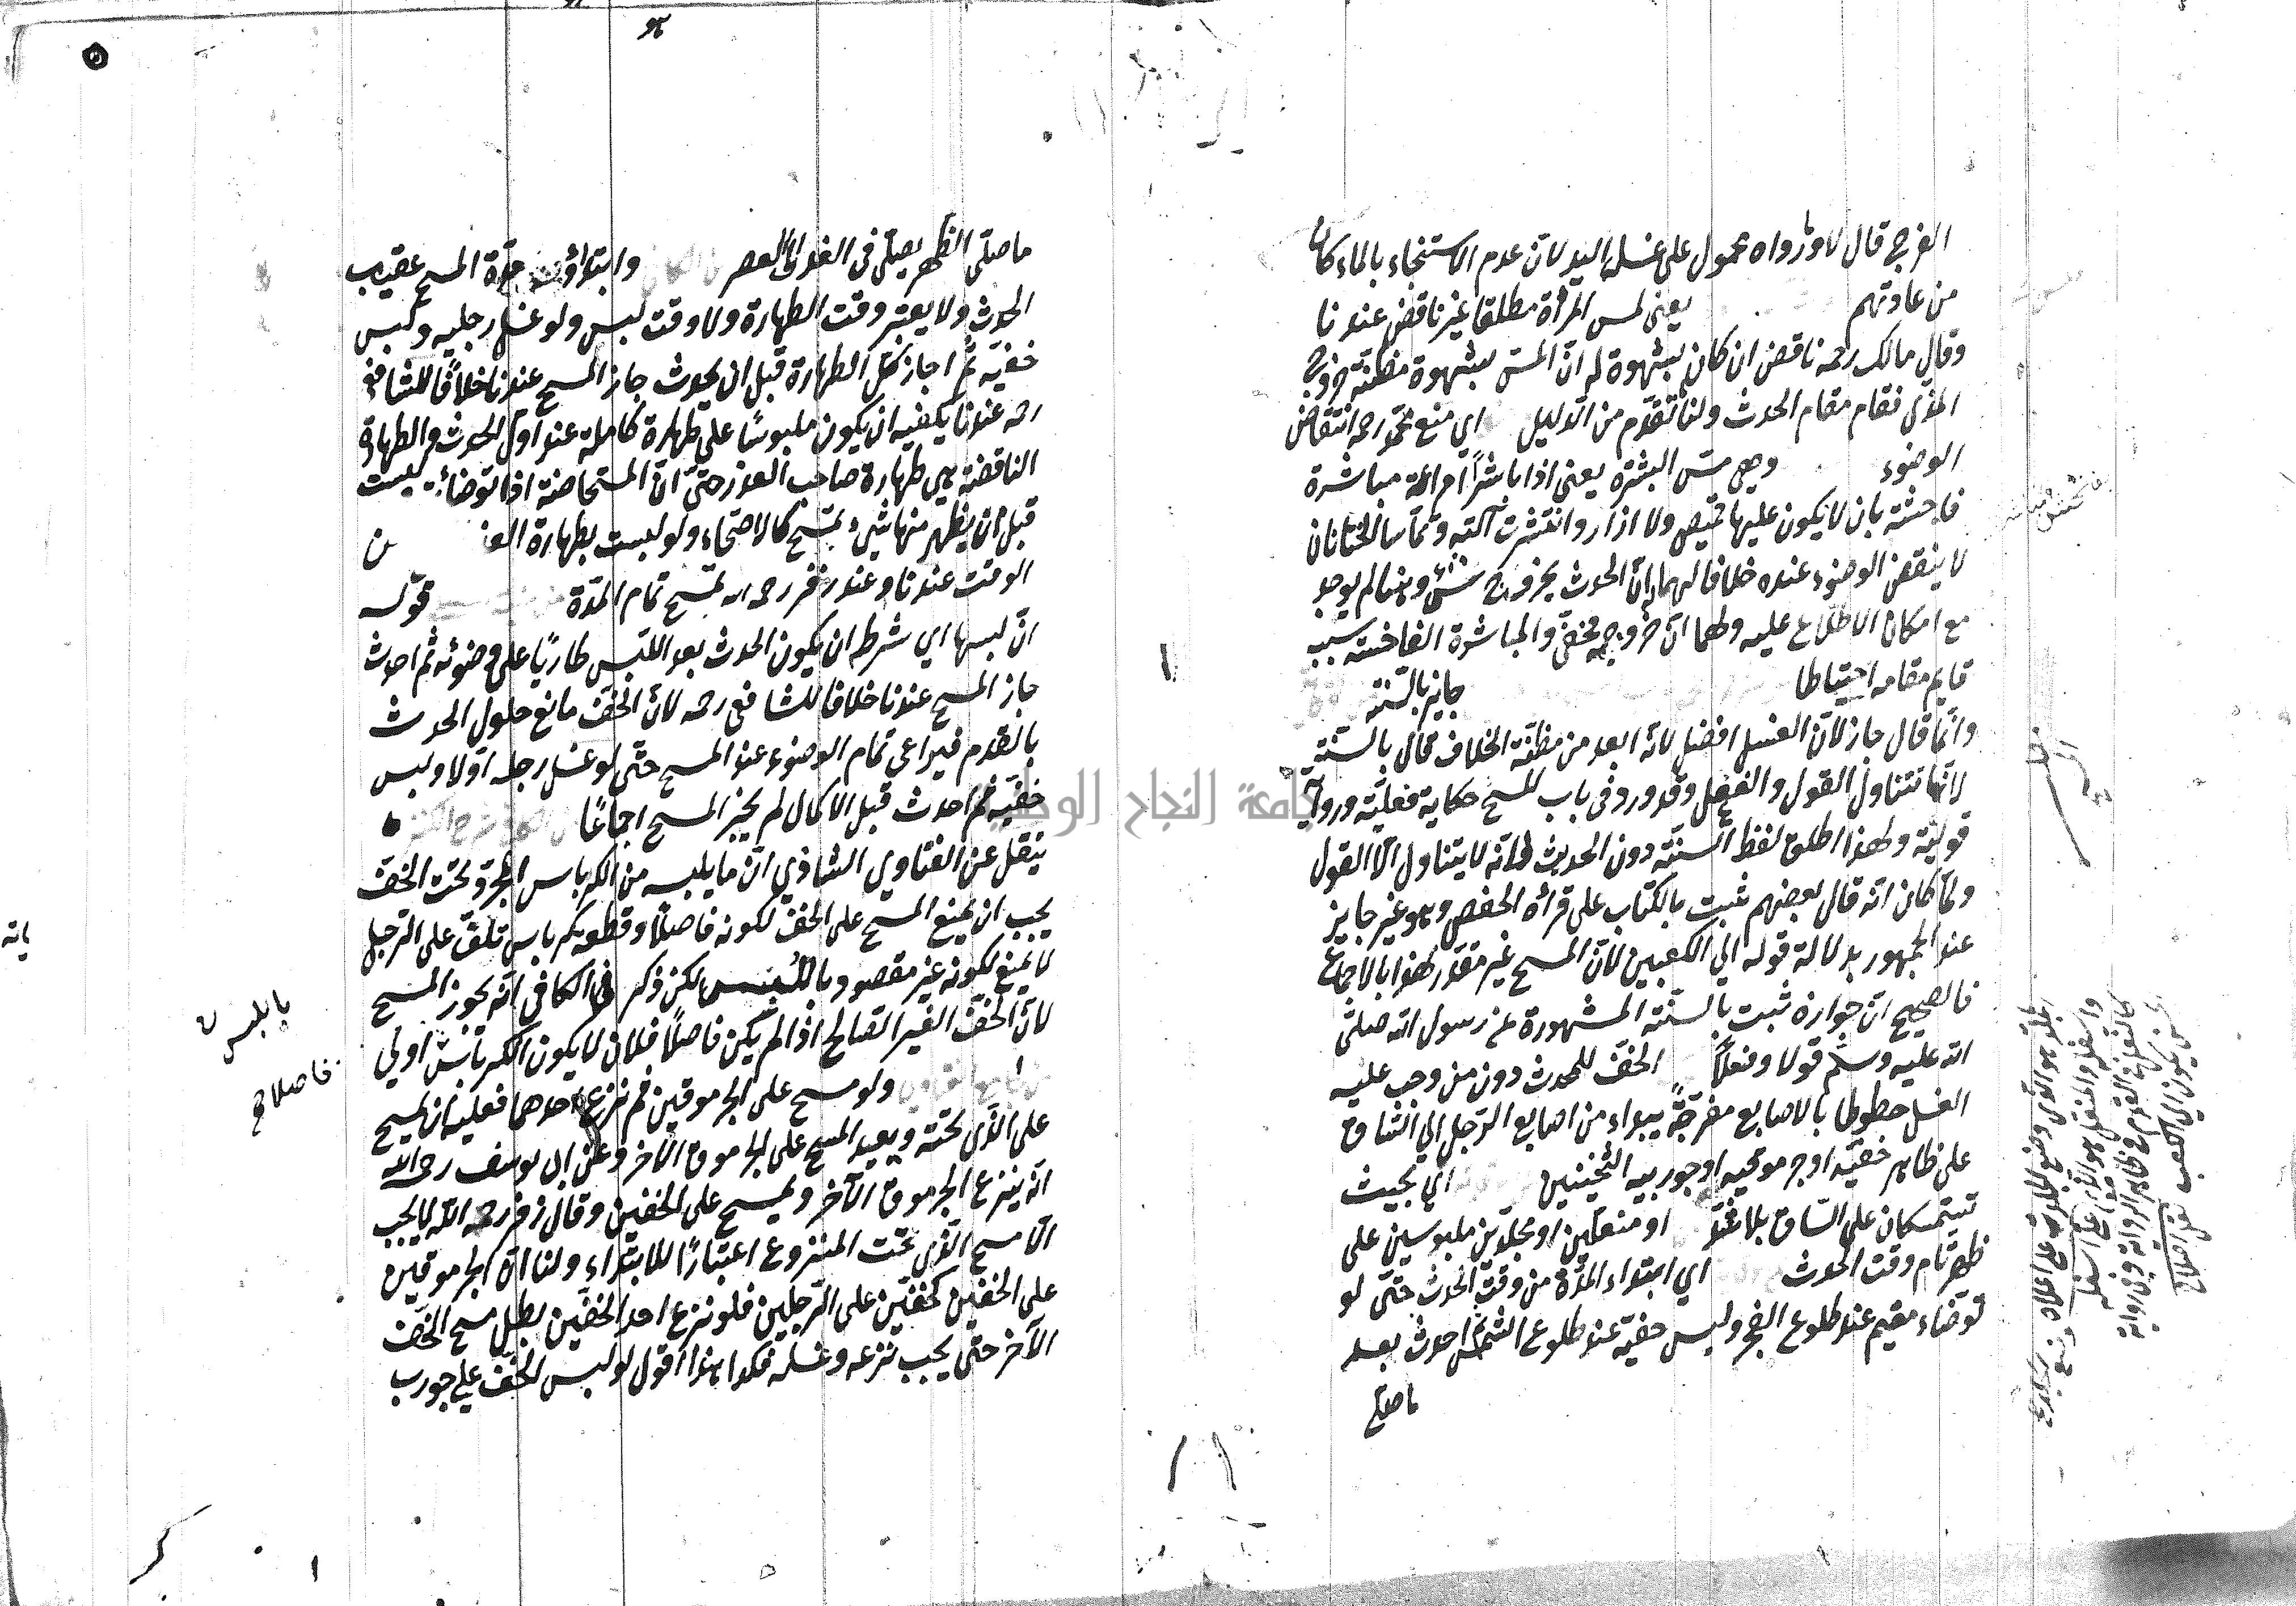 الفرج قال لا وما رواه محمول على غسل اليد لان عدم الاستنجاء بالماء كان
من عادتهم يعني لمس المرأة مطلقا غير ناقض عندنا
وقال مالك رحمه ناقض ان كان بشهوة له ان المس بشهوة مظنة خروج
المذي فقام مقام الحدث ولنا ما تقدم من الدليل اي منع محمد رحمه انتقاض
الوضوء وهي مس البشرة يعني اذا باشر امرأته مباشرة
فاحشة بان لا يكون عليها قميص ولا ازار وانتشرت آلته وتماسا الختانان
لا ينقض الوضوء عنده خلافا لهما له ان الحدث بخروج شئ وهنا لم يوجد
مع امكان الاطلاع عليه ولهما ان خروجه مخفي والمباشرة الفاحشة سبب
قايم مقامه احتياطا جايز بالسنة
وانما قال جاز لان الغسل افضل لانه ابعد من مظنة الخلاف قال بالسنة
لانها تتناول القول والفعل وقد ورد في باب المسح حكاية فعلية ورواية
قولية ولهذا اطلق لفظ السنة دون الحديث لانه لا يتناول الا القول
ولما كان انه قال بعضهم ثبت بالكتاب على قراءة الخفض وهو غير جايز
عند الجمهور بدلالة قوله الي الكعبين لان المسح غير مقدر بهذا بالاجماع
فالصحيح ان جوازه ثبت بالسنة المشهورة عن رسول الله صلى
الله عليه وسلم قولا وفعلا الخف للمحدث دون من وجب عليه
الغسل خطوطا بالاصابع مفرجة يبداء من اصابع الرجل الي الساق
على ظاهر خفيه او جرموقيه او جوربيه الثخينين اي بحيث
تيتمسكان على الساق بلا شد او منعلين او مجلدين ملبوسين على
طهر تام وقت الحدث اي ابتداء المدة من وقت الحدث حتى لو
توضاء مقيم عند طلوع الفجر ولبس خفيه عند طلوع الشمس ثم احدث بعد
ما صلى
ما صلى الظهر يصلي في الغد الى العصر وابتداؤ مدة المسح عقيب
الحدث ولا يعتبر وقت الطهارة ولا وقت لبس ولو غسل رجليه ولبس
خفيه ثم اجاز كل الطهارة قبل ان يحدث جاز المسح عندنا خلافا للشافعي
رحمه عندنا يكفيه ان يكون ملبوسا على طهارة كاملة عند اول الحدث والطهارة
الناقضة هي طهارة صاحب العذر حتى ان المستحاضة اذا توضأت لبست
قبل ان يظهر منها شيء تمسح كالاصحاء ولو لبست بطهارة العذ
الوقت عندنا وعند زفر رحمه الله تمسح تمام المدة قوله
ان لبسها اي شرطه ان يكون الحدث بعد اللبس طاريا على وضوئه ثم احدث
جاز المسح عندنا خلافا للشافعي رحمه لان الخف مانع حلول الحدث
بالقدم فيراعي تمام الوضوء عند المسح حتى لو غسل رجله اولا ولبس
خفيه ثم احدث قبل الاكمال لم يجز المسح اجماعا
ينقل عن الفتاوي الشاذي ان ما يلبس من الكرباس المجرد تحت الخف
يجب ان يمنع المسح على الخف لكونه فاصلا وقطعة كرباس تلف على الرجل
لا يمنع لكونه غير مقصود باللبس لكن ذكر في الكافي انه يجوز المسح
لان الخف الغير الصالح اذا لم يكن فاصلا فلان لا يكون الكرباس اولي
ولو مسح على الجرموقين ثم نزع احدهما فعليه ان يمسح
على الذي تحته ويعيد المسح على الجرموق الآخر وعن ابي يوسف رحمه الله
انه ينزع الجرموق الآخر ويمسح على الخفين وقال زفر رحمه الله لا يجب
الا مسح الذي تحت المنزوع اعتبارا للابتداء ولنا ان الجرموقين
على الخفين كخفين على الرجلين فلو نزع احد الخفين بطل مسح الخف
الآخر حتى يجب نزعه وغسله فكذا هذا اقول لو لبس الخف علي جورب
فاصلا
جامعة النجاح الوطنية